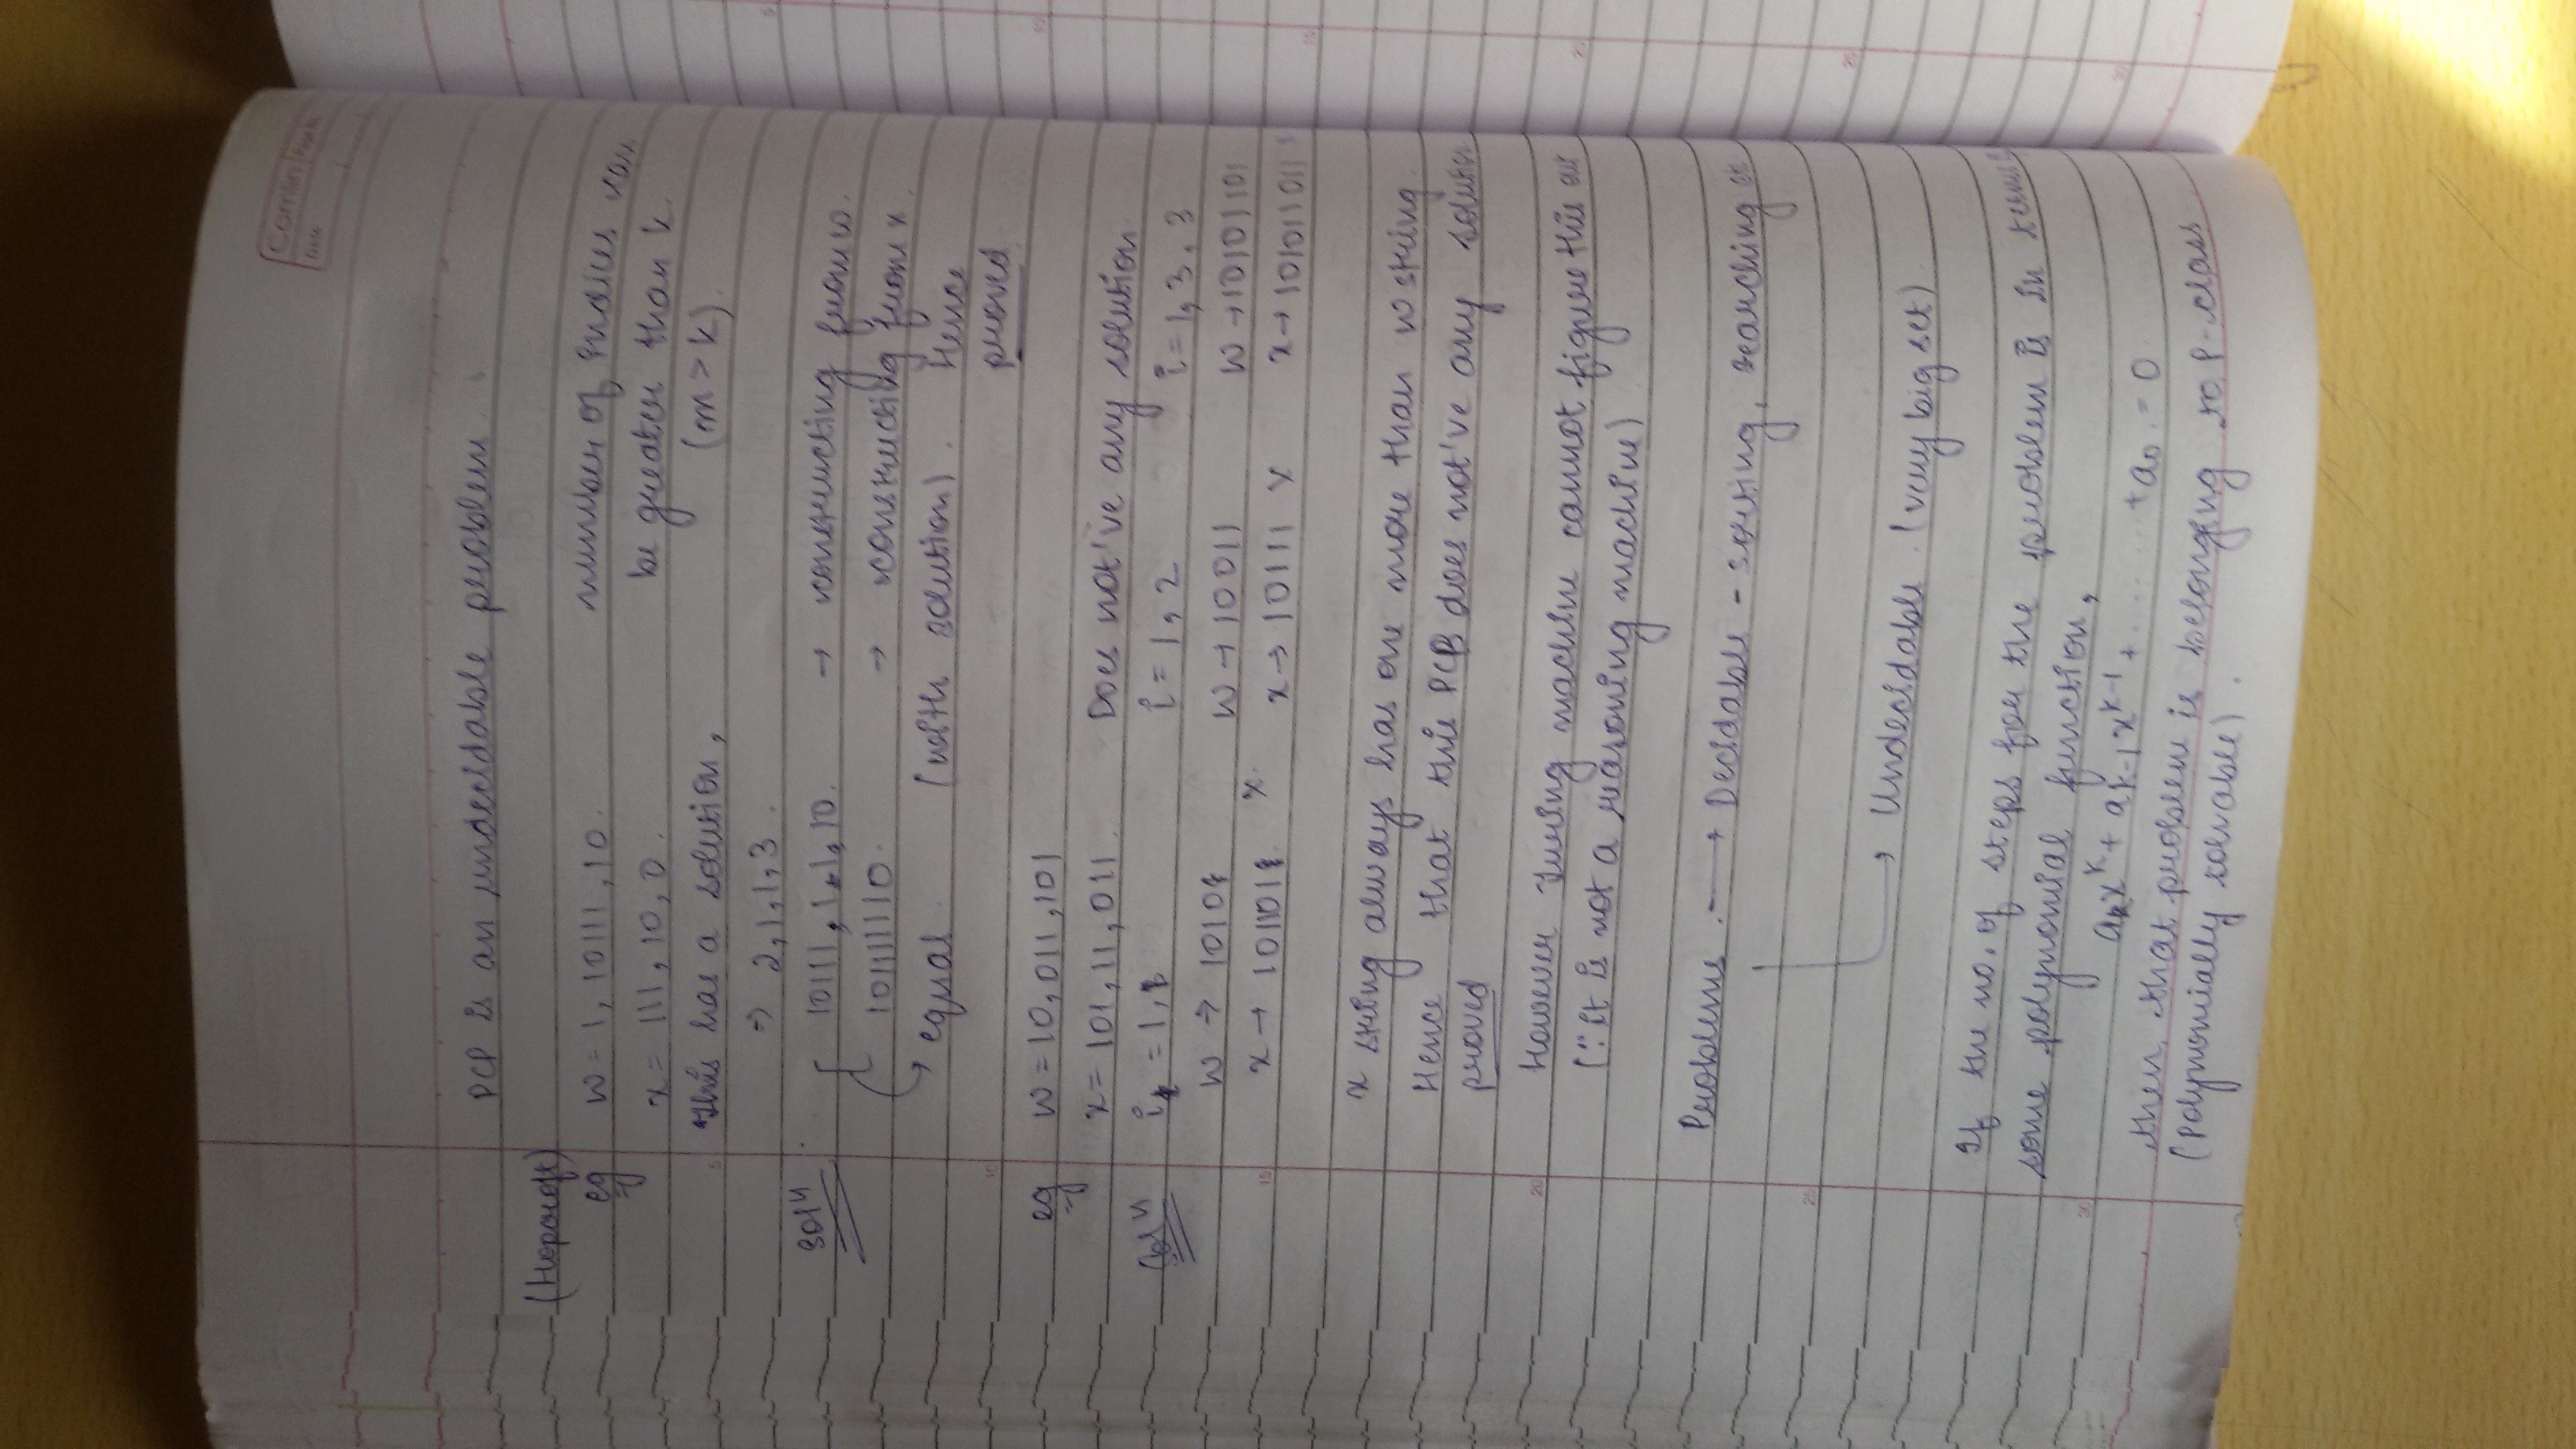 Camlin Page No.
Date
PCP is an undecidable problem
(Hopcroft)
eg w = 1, 10111, 10. number of indices can
x = 111, 10, 0. be greater than k.
This has a solution, (m > k).
⇒ 2, 1, 1, 3.
Solⁿ 10111, 1, 1, 10. → constructing from w.
101111110. → constructing from x.
equal (with solution). Hence
proved
eg w = 10, 011, 101
x = 101, 11, 011. Does not've any solution
Solⁿ i = 1, i = 1, 2 i = 1, 3, 3
w → 1010 w → 10011 w → 10101101
x → 101101 x x → 10111 x x → 101011011
x string always has one more than w string.
Hence that this PCP does not've any solution
proved
However Turing machine cannot figure this out
(∵ it is not a reasoning machine)
Problems → Decidable - sorting, searching etc
→ Undecidable (very big set)
If the no. of steps for the problem is in terms of
some polynomial function,
aₖxᵏ + aₖ₋₁xᵏ⁻¹ + ........ + a₀ = 0
then, that problem is belonging to P-class
(Polynomially solvable).